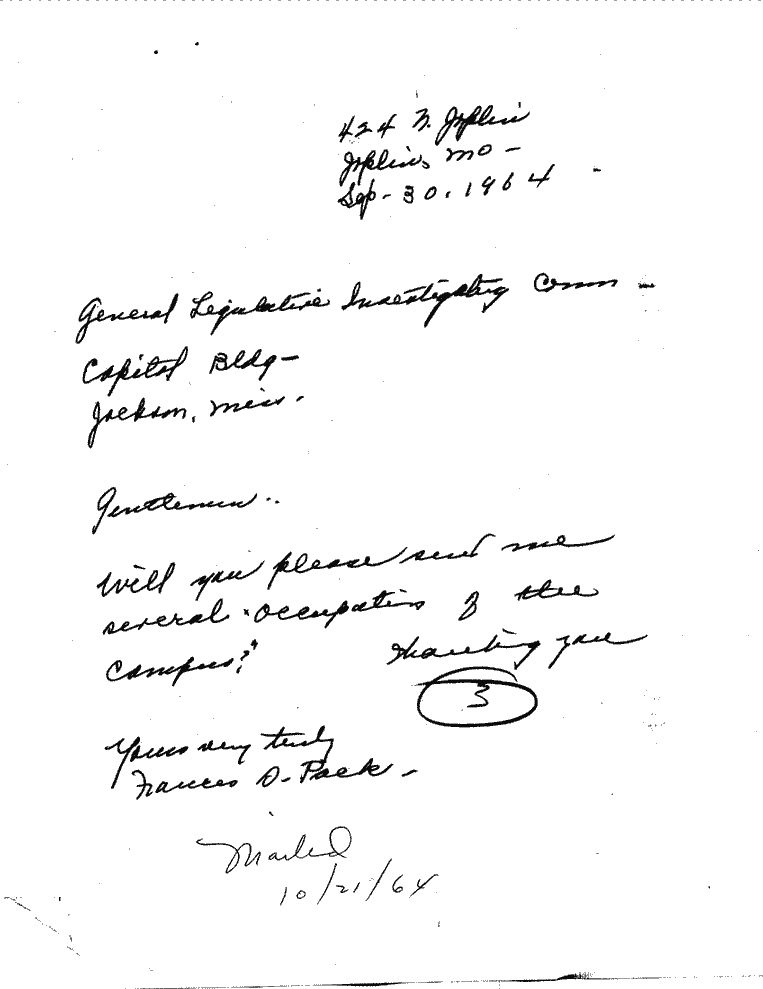 424 N. Joplin
Joplin, Mo -
Sep - 30. 1964 -
General Legislative Investigating Comm -
Capitol Bldg -
Jackson, Miss.
Gentlemen..
Will you please send me
several "Occupation of the
Campus?"
Thanking you
3
Yours very truly
Frances D. Pack -
Mailed
10/21/64